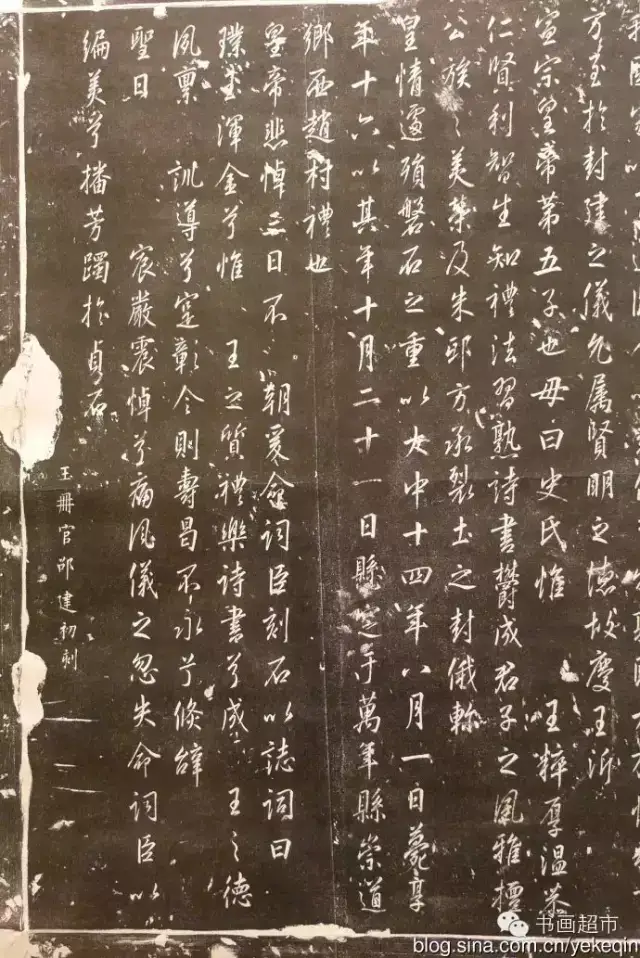 我國家以
方至於封建之儀允属賢明之德故慶王沂
宣宗皇帝第五子也母曰史氏惟 王粹厚温恭
仁賢利智生知禮法習熟詩書欝成君子之風雅擅
公族之美榮及朱邸方承裂土之封俄軫
皇情遽殞磐石之重以大中十四年八月一日薨享
年十六以其年十月二十一日縣窆于萬年縣崇道
鄉西趙村禮也
皇帝悲悼三日不 朝爰命詞臣刻石以誌詞曰
璞玉渾金兮惟 王之質禮樂詩書兮成 王之德
夙禀 訓導兮寔彰令則壽昌不永兮倏辞
聖日 宸嚴震悼兮痛風儀之忽失命詞臣以
編美兮播芳躅於貞石
玉冊官邵建初刻
书画超市
blog.sina.com.cn/yekeqin